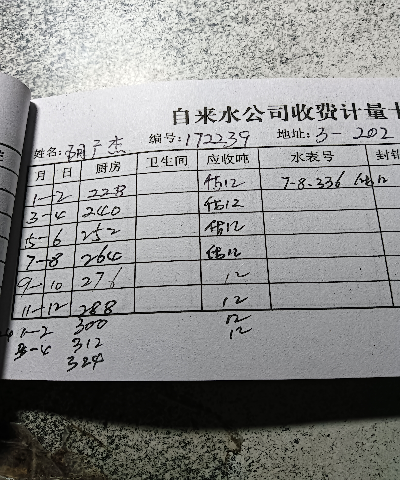 自来水公司收费计量卡
姓名: 杰 编号: 172239 地址: 3-202
月 日 厨房 卫生间 应收吨 水表号 封
1-2 228 估12 7-8.336 估12
3-4 240 估12
5-6 252 估12
7-8 264 估12
9-10 276 12
11-12 288 12
1-2 300 12
3-4 312 12
324